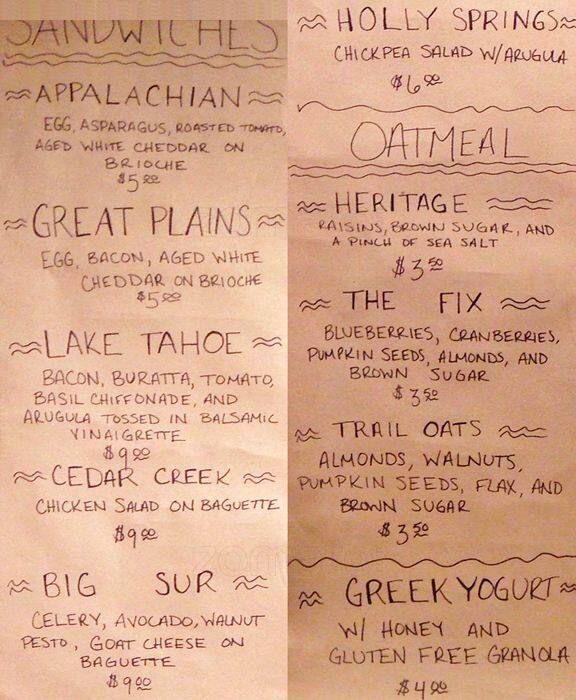 SANDWICHES
APPALACHIAN
EGG, ASPARAGUS, ROASTED TOMATO,
AGED WHITE CHEDDAR ON
BRIOCHE
$5.00
GREAT PLAINS
EGG, BACON, AGED WHITE
CHEDDAR ON BRIOCHE
$5.00
LAKE TAHOE
BACON, BURATTA, TOMATO,
BASIL CHIFFONADE, AND
ARUGULA TOSSED IN BALSAMIC
VINAIGRETTE
$9.00
CEDAR CREEK
CHICKEN SALAD ON BAGUETTE
$9.00
BIG SUR
CELERY, AVOCADO, WALNUT
PESTO, GOAT CHEESE ON
BAGUETTE
$9.00
HOLLY SPRINGS
CHICKPEA SALAD W/ARUGULA
$6.00
OATMEAL
HERITAGE
RAISINS, BROWN SUGAR, AND
A PINCH OF SEA SALT
$3.50
THE FIX
BLUEBERRIES, CRANBERRIES,
PUMPKIN SEEDS, ALMONDS, AND
BROWN SUGAR
$3.50
TRAIL OATS
ALMONDS, WALNUTS,
PUMPKIN SEEDS, FLAX, AND
BROWN SUGAR
$3.50
GREEK YOGURT
W/ HONEY AND
GLUTEN FREE GRANOLA
$4.00